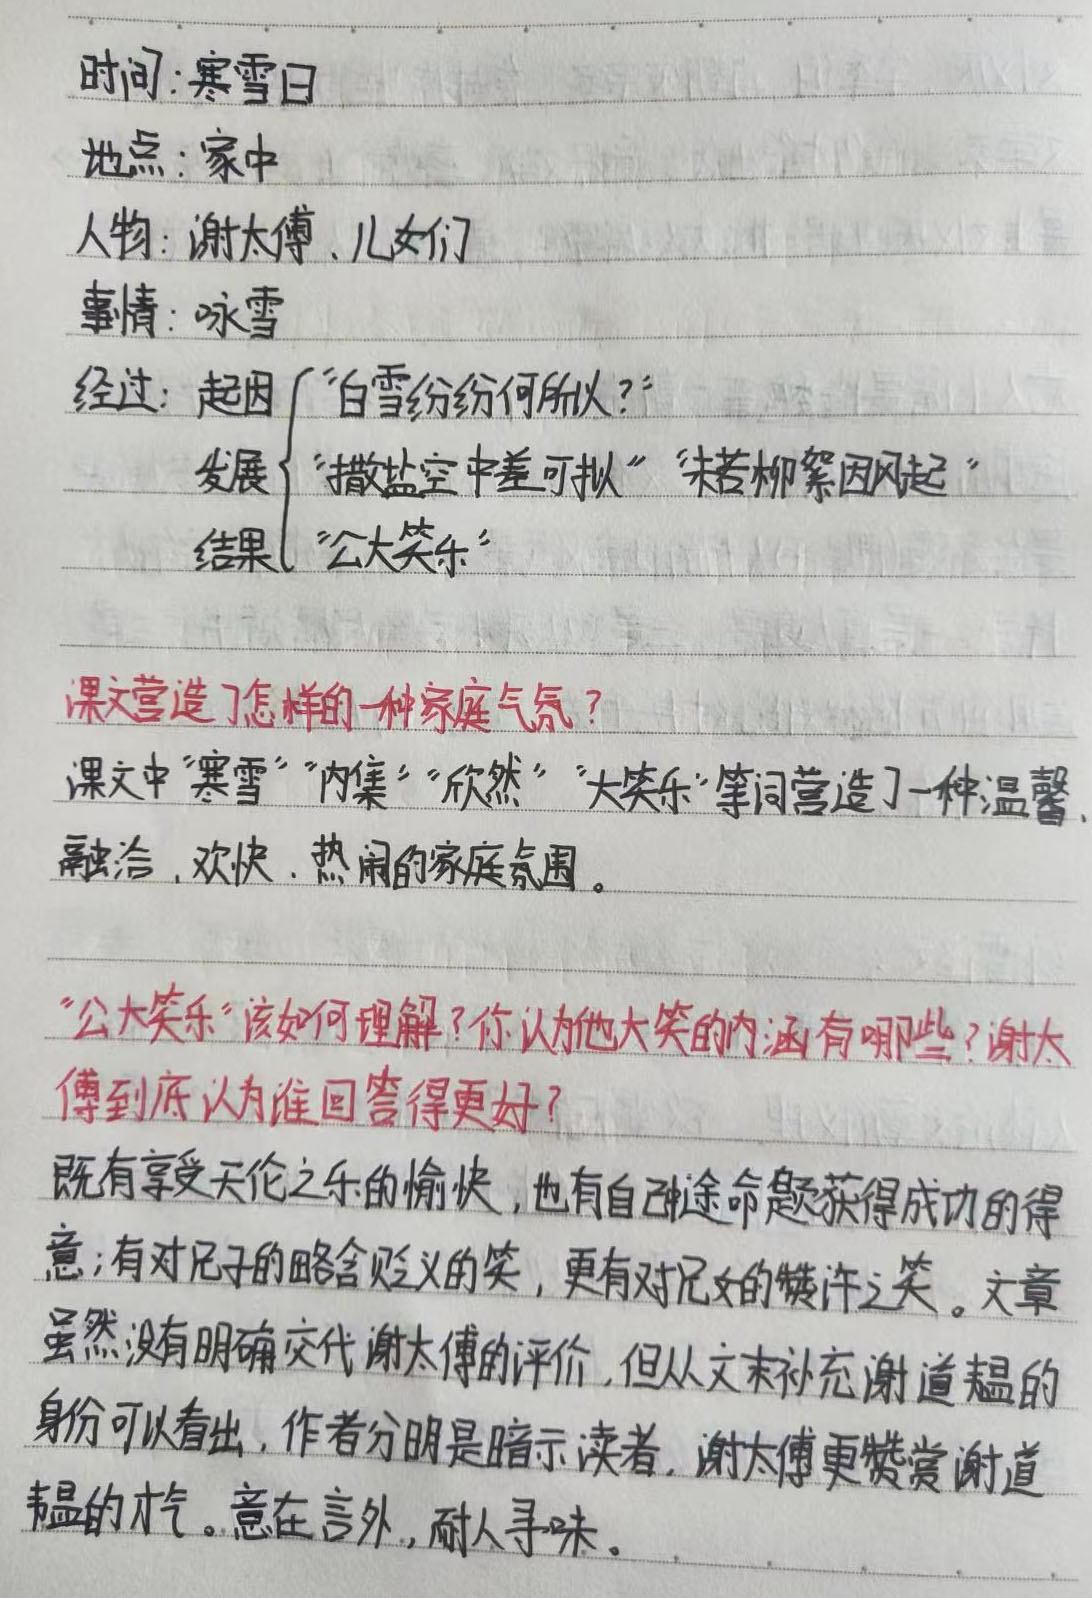 时间：寒雪日
地点：家中
人物：谢太傅、儿女们
事情：咏雪
经过：起因 “白雪纷纷何所以？”
发展 “撒盐空中差可拟” “未若柳絮因风起”
结果 “公大笑乐”
课文营造了怎样的一种家庭气氛？
课文中“寒雪”“内集”“欣然”“大笑乐”等词营造了一种温馨、
融洽、欢快、热闹的家庭氛围。
“公大笑乐”该如何理解？你认为他大笑的内涵有哪些？谢太
傅到底认为谁回答得更好？
既有享受天伦之乐的愉快，也有自己命题获得成功的得
意；有对兄子的略含贬义的笑，更有对兄女的赞许之笑。文章
虽然没有明确交代谢太傅的评价，但从文末补充谢道韫的
身份可以看出，作者分明是暗示读者，谢太傅更赞赏谢道
韫的才气。意在言外，耐人寻味。